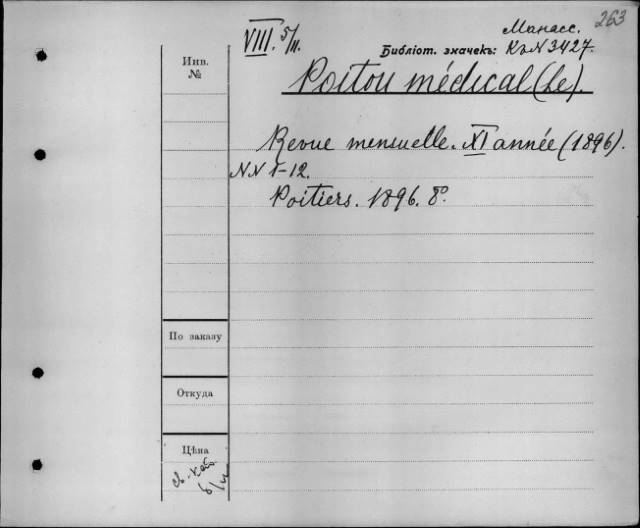 263
VIII. 5/II.
Манасс.
Инв.
№
Библіот. значекъ: Къ N 3427.
Poitou médical (Le).
Revue mensuelle. XI année (1896).
NN 1-12.
Poitiers. 1896. 8°.
По заказу
Откуда
Цѣна